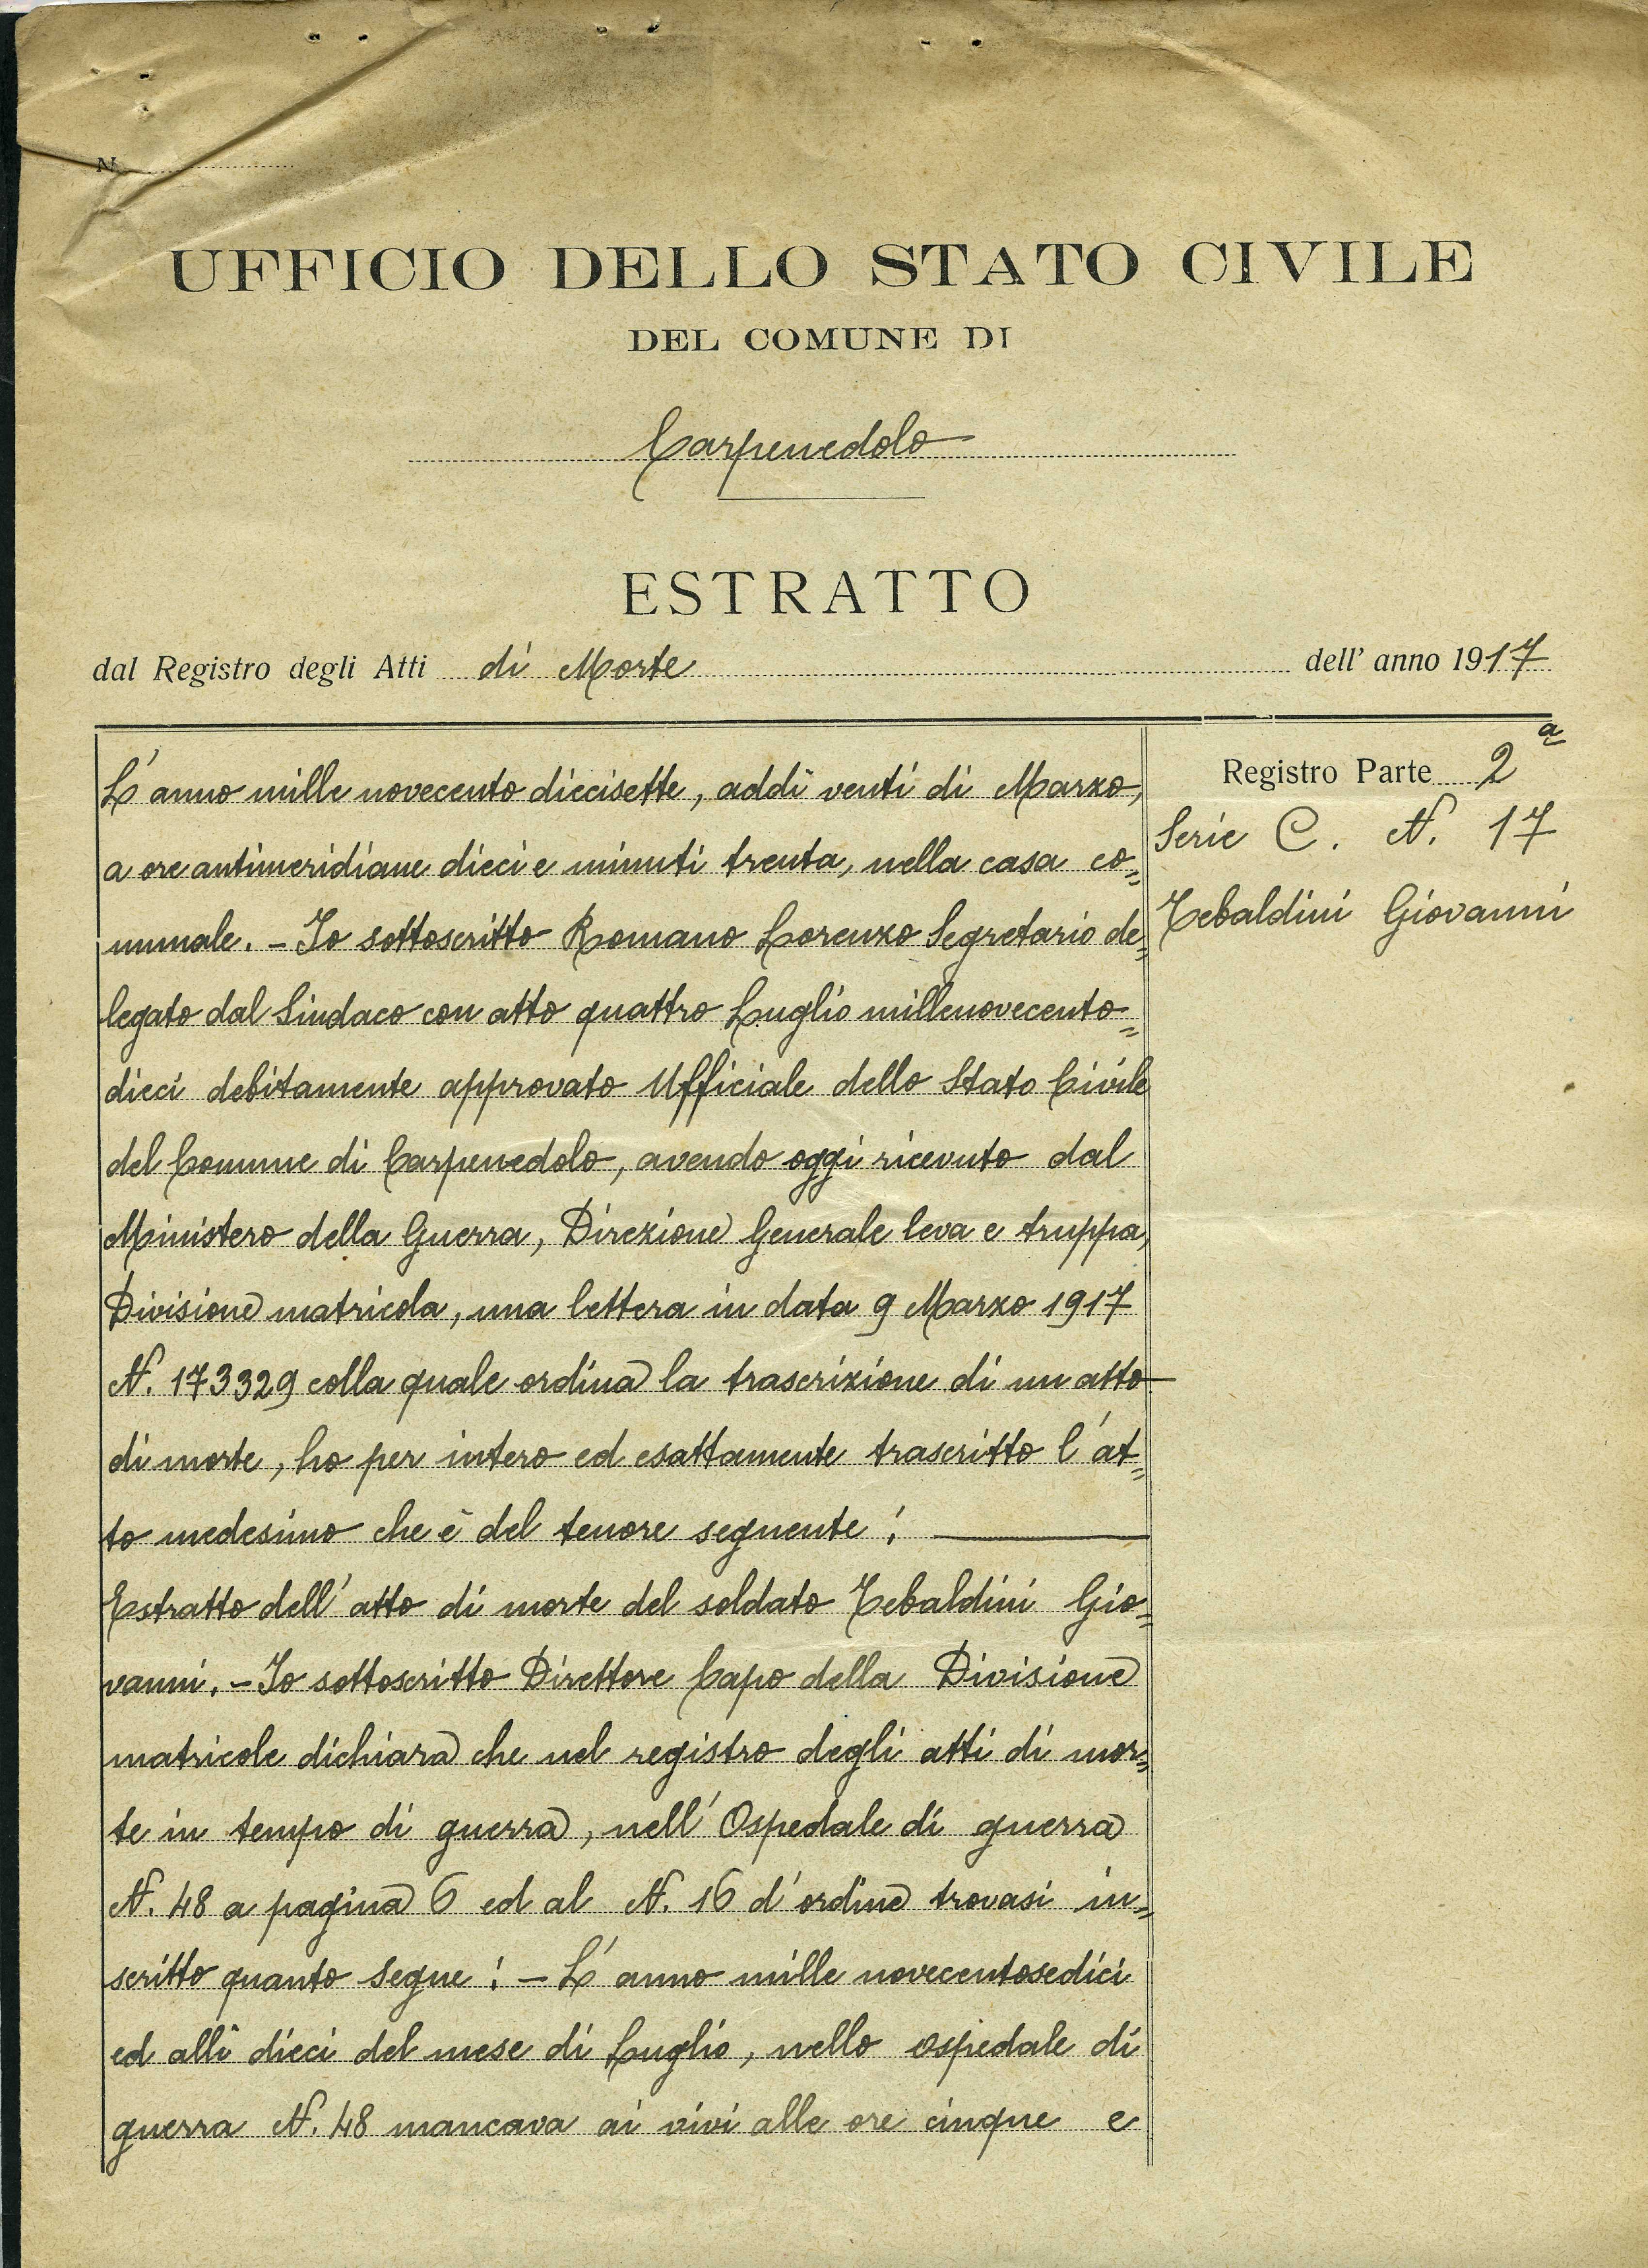 N.
UFFICIO DELLO STATO CIVILE
DEL COMUNE DI
Carpenedolo
ESTRATTO
dal Registro degli Atti di Morte dell' anno 1917
L'anno mille novecento diecisette, addì venti di Marzo,
a ore antimeridiane dieci e minuti trenta, nella casa co=
munale. – Io sottoscritto Romano Lorenzo Segretario de=
legato dal Sindaco con atto quattro Luglio millenovecento=
dieci debitamente approvato Ufficiale dello Stato Civile
del Comune di Carpenedolo, avendo oggi ricevuto dal
Ministero della Guerra, Direzione Generale leva e truppa,
Divisione matricola, una lettera in data 9 Marzo 1917
N. 173329 colla quale ordina la trascrizione di un atto
di morte, ho per intero ed esattamente trascritto l'at=
to medesimo che è del tenore seguente:
Estratto dell'atto di morte del soldato Tebaldini Gio=
vanni. – Io sottoscritto Direttore Capo della Divisione
matricole dichiara che nel registro degli atti di mor=
te in tempo di guerra, nell'Ospedale di guerra
N. 48 a pagina 6 ed al N. 16 d'ordine trovasi in=
scritto quanto segue: – L'anno mille novecentosedici
ed alli dieci del mese di Luglio, nello ospedale di
guerra N. 48 mancava ai vivi alle ore cinque e
Registro Parte 2ª
Serie C. N. 17
Tebaldini Giovanni